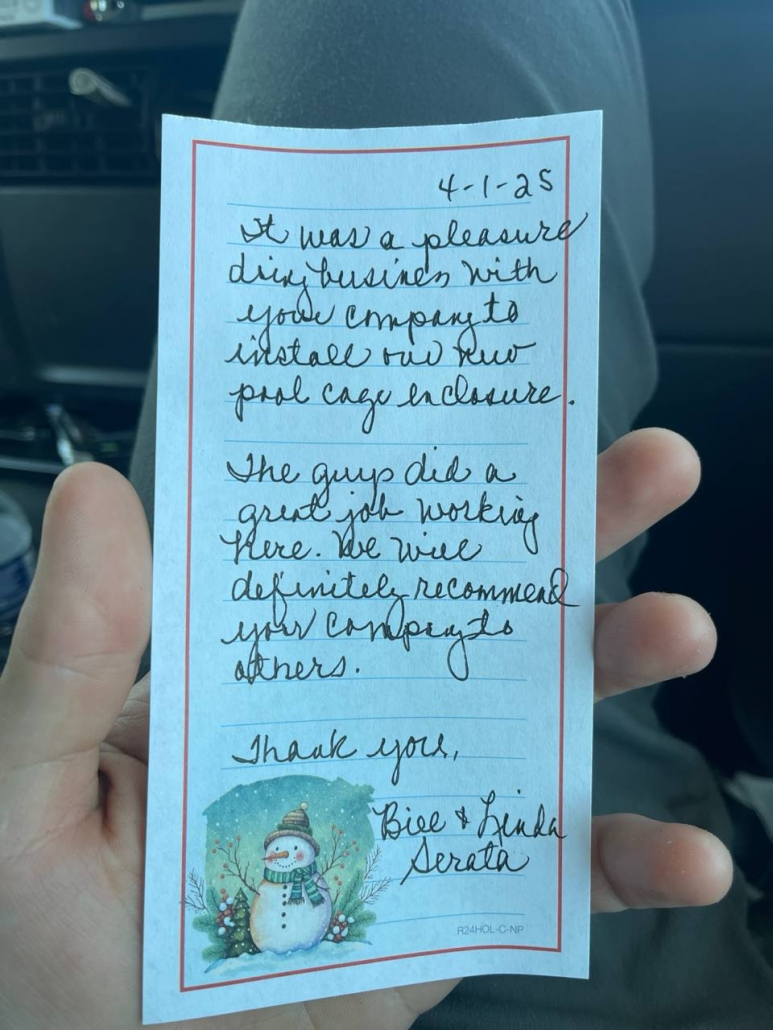 4-1-25
It was a pleasure
doing business with
your company to
install our new
pool cage enclosure.
The guys did a
great job working
here. We will
definitely recommend
your company to
others.
Thank you,
Bill & Linda
Serata
R24HOL-C-NP